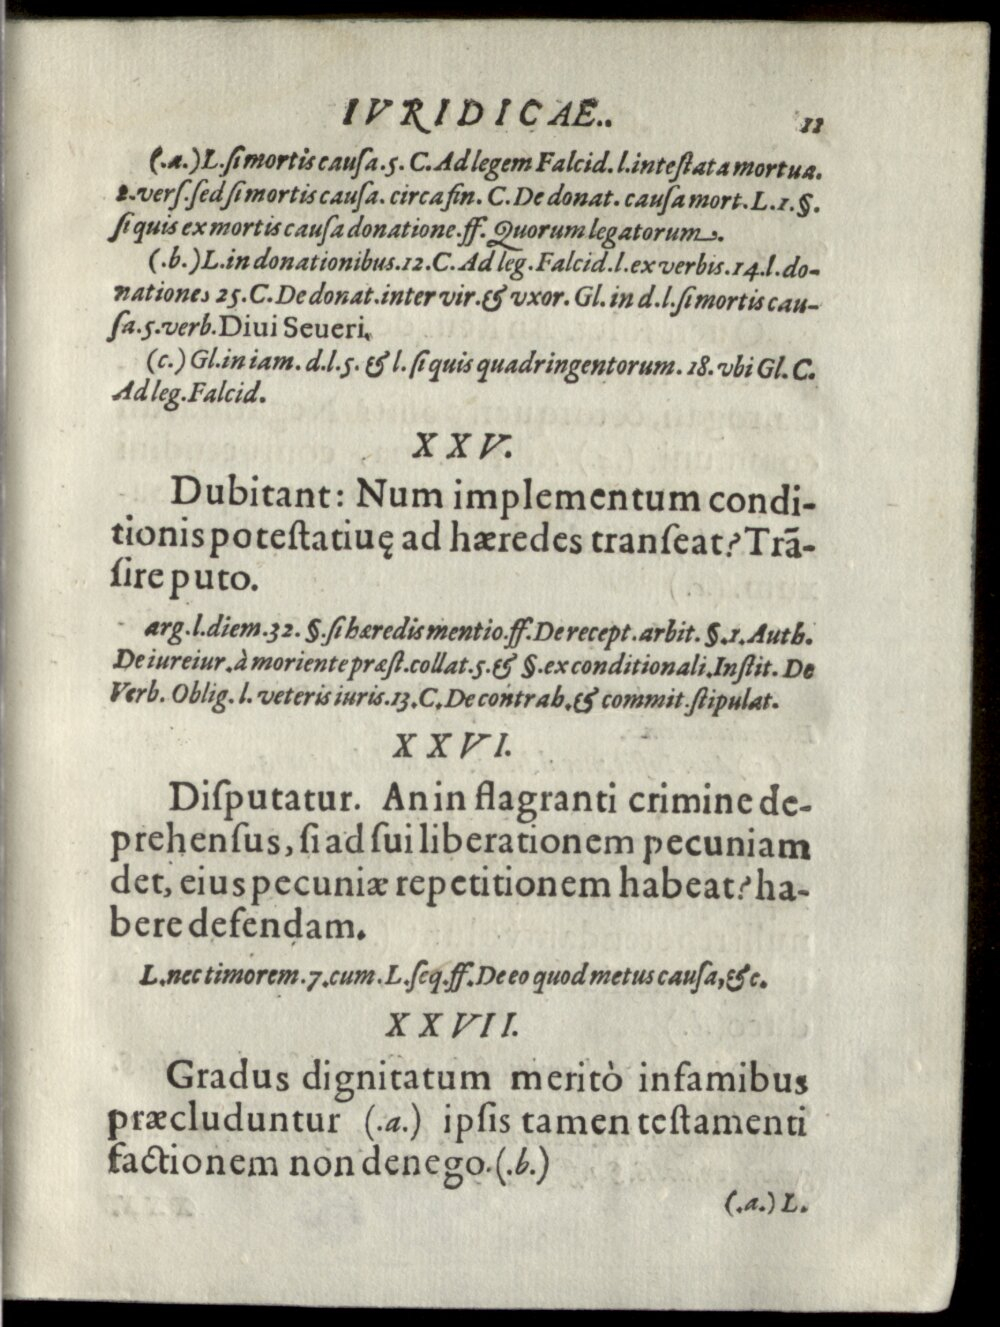 IVRIDICAE.. 11
(.a.) L. ſi mortis cauſa. 5. C. Ad legem Falcid. l. inteſtata mortua.
2. verſ. ſed ſi mortis cauſa. circa fin. C. De donat. cauſa mort. L. 1. §.
ſi quis ex mortis cauſa donatione. ff. Quorum legatorum.
(.b.) L. in donationibus. 12. C. Ad leg. Falcid. l. ex verbis. 14. l. do-
nationes 25. C. De donat. inter vir. & vxor. Gl. in d. l. ſi mortis cau-
ſa. 5. verb. Diui Seueri.
(c.) Gl. in iam. d. l. 5. & l. ſi quis quadringentorum. 18. vbi Gl. C.
Ad leg. Falcid.
XXV.
Dubitant: Num implementum condi-
tionis poteſtatiuę ad hæredes tranſeat? Trã-
ſire puto.
arg. l. diem. 32. §. ſi hæredis mentio. ff. De recept. arbit. §. 1. Auth.
De iureiur. à moriente præſt. collat. 5. & §. ex conditionali. Inſtit. De
Verb. Oblig. l. veteris iuris. 13. C. De contrah. & commit. ſtipulat.
XXVI.
Diſputatur. An in flagranti crimine de-
prehenſus, ſi ad ſui liberationem pecuniam
det, eius pecuniæ repetitionem habeat? ha-
bere defendam.
L. nec timorem. 7. cum. L. ſeq. ff. De eo quod metus cauſa, &c.
XXVII.
Gradus dignitatum meritò infamibus
præcluduntur (.a.) ipſis tamen teſtamenti
factionem non denego. (.b.)
(.a.) L.